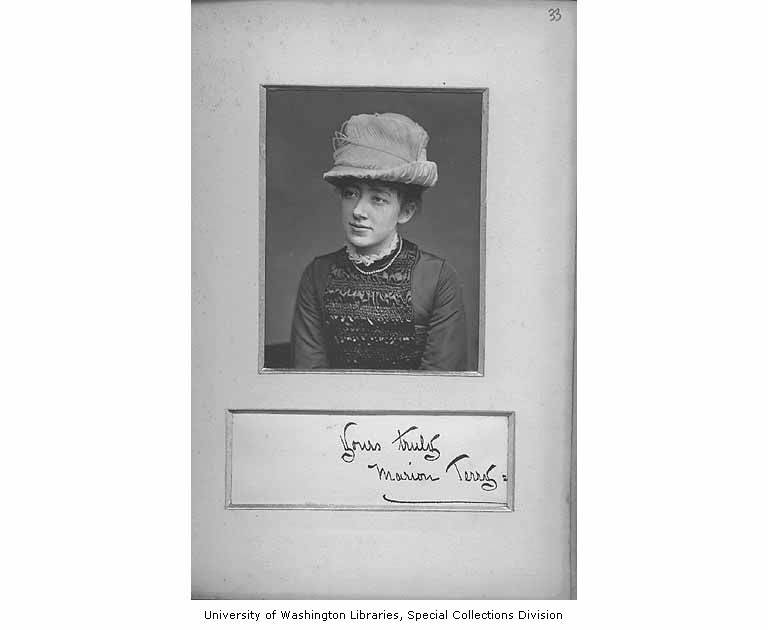 33
Yours truly
Marion Terry=
University of Washington Libraries, Special Collections Division